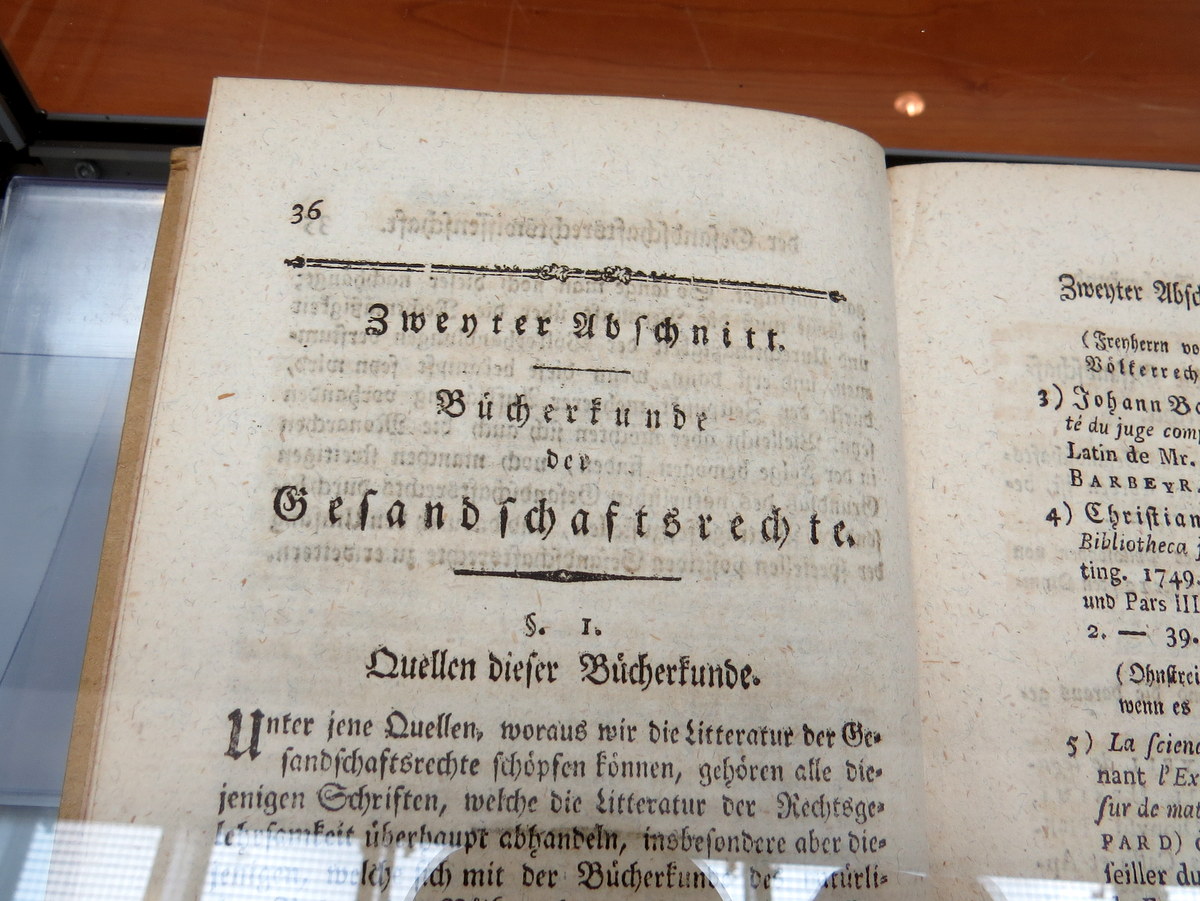 36
Zweyter Abſchnitt.
Bücherkunde
der
Geſandſchaftsrechte.
§. 1.
Quellen dieſer Bücherkunde.
Unter jene Quellen, woraus wir die Litteratur der Ge⸗
ſandſchaftsrechte ſchöpfen können, gehören alle die⸗
jenigen Schriften, welche die Litteratur der Rechtsge⸗
lehrſamkeit überhaupt abhandeln, insbeſondere aber die⸗
jenigen, welche ſich mit der Bücherkunde der natürli⸗
Zweyter Abſc
(Freyherrn vo
Völkerrech
3) Johann Bo
té du juge comp
Latin de Mr.
BARBEYR.
4) Chriſtian
Bibliotheca j
ting. 1749.
und Pars III
2. — 39.
(Ohnſtrei
wenn es
5) La ſcienc
nant l'Ex
ſur de mat
PARD) c
ſeiller du